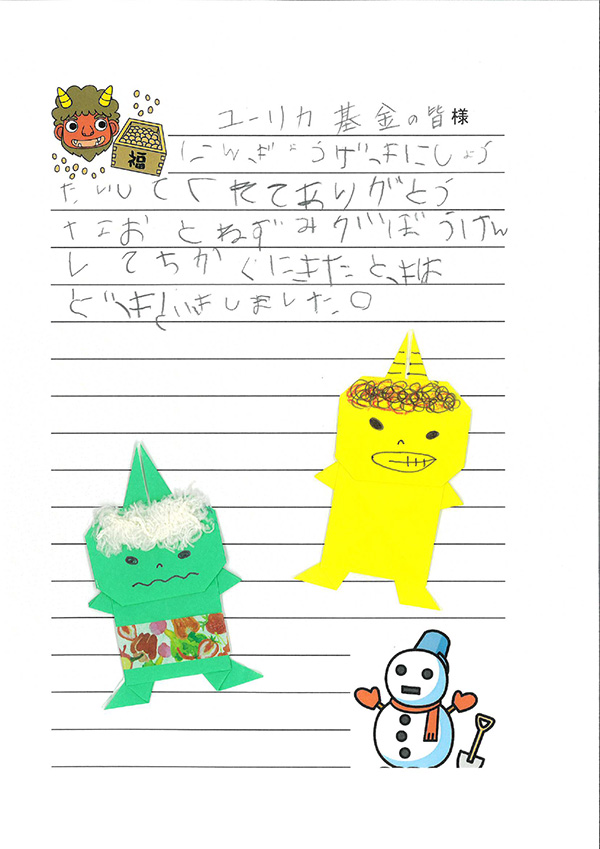 福
ユーリカ基金の皆様
にんぎょうげきにしょう
たいしてくれてありがとう
なおとねずみがぼうけん
してちかぐにきたときは
どきどきしました。